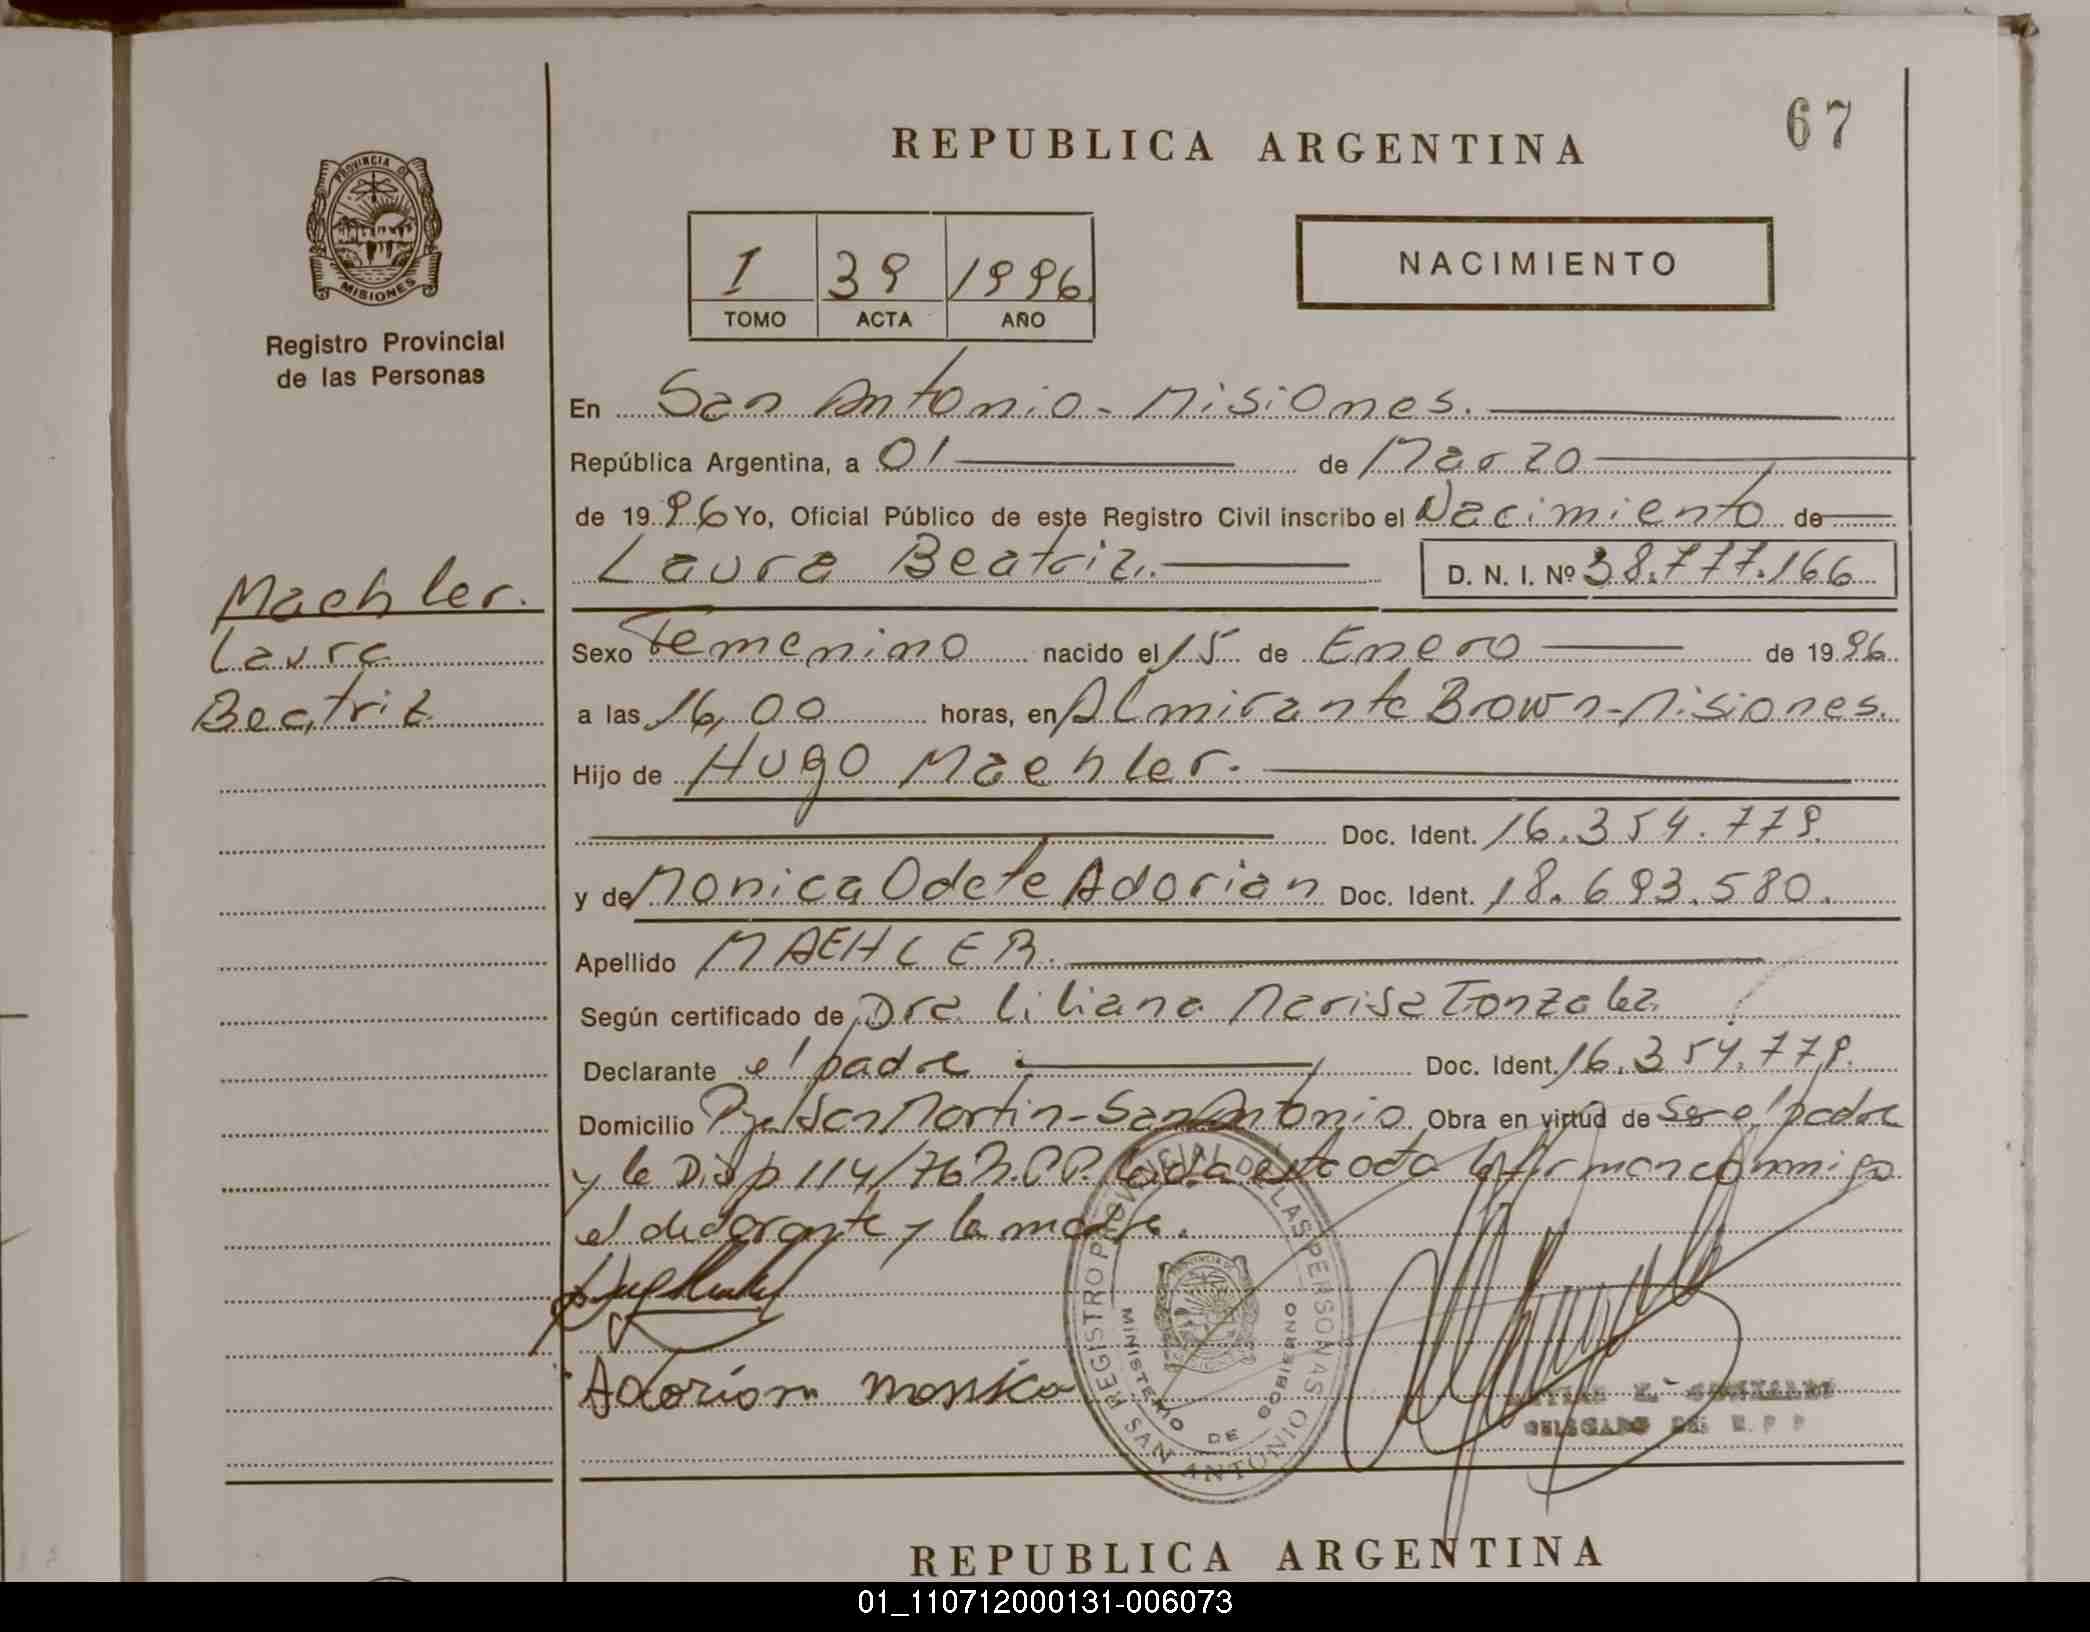 67
REPUBLICA ARGENTINA
PROVINCIA DE
MISIONES
Registro Provincial
de las Personas
1 39 1996
TOMO ACTA AÑO
NACIMIENTO
En San Antonio - Misiones.
República Argentina, a 01 de Marzo
de 1996 Yo, Oficial Público de este Registro Civil inscribo el Nacimiento de
Laura Beatriz. D. N. I. Nº 38.777.166
Maehler.
Laura
Beatriz
Sexo Femenino nacido el 15 de Enero de 1996
a las 16,00 horas, en Almirante Brown - Misiones.
Hijo de Hugo Maehler.
Doc. Ident. 16.354.779.
y de Monica Odete Adorian Doc. Ident. 18.693.580.
Apellido MAEHLER.
Según certificado de Dra Liliana Marisa Gonzalez
Declarante el padre Doc. Ident. 16.354.779.
Domicilio Pje San Martin - San Antonio Obra en virtud de Ser el padre
y la Disp 114/76 R.P.P. Leida esta acta la firman conmigo
el declarante y la madre.
Adorian Monica
REGISTRO PROVINCIAL DE LAS PERSONAS
MINISTERIO DE GOBIERNO
SAN ANTONIO
GONZALEZ
DELEGADO DEL R. P. P.
REPUBLICA ARGENTINA
01_110712000131-006073